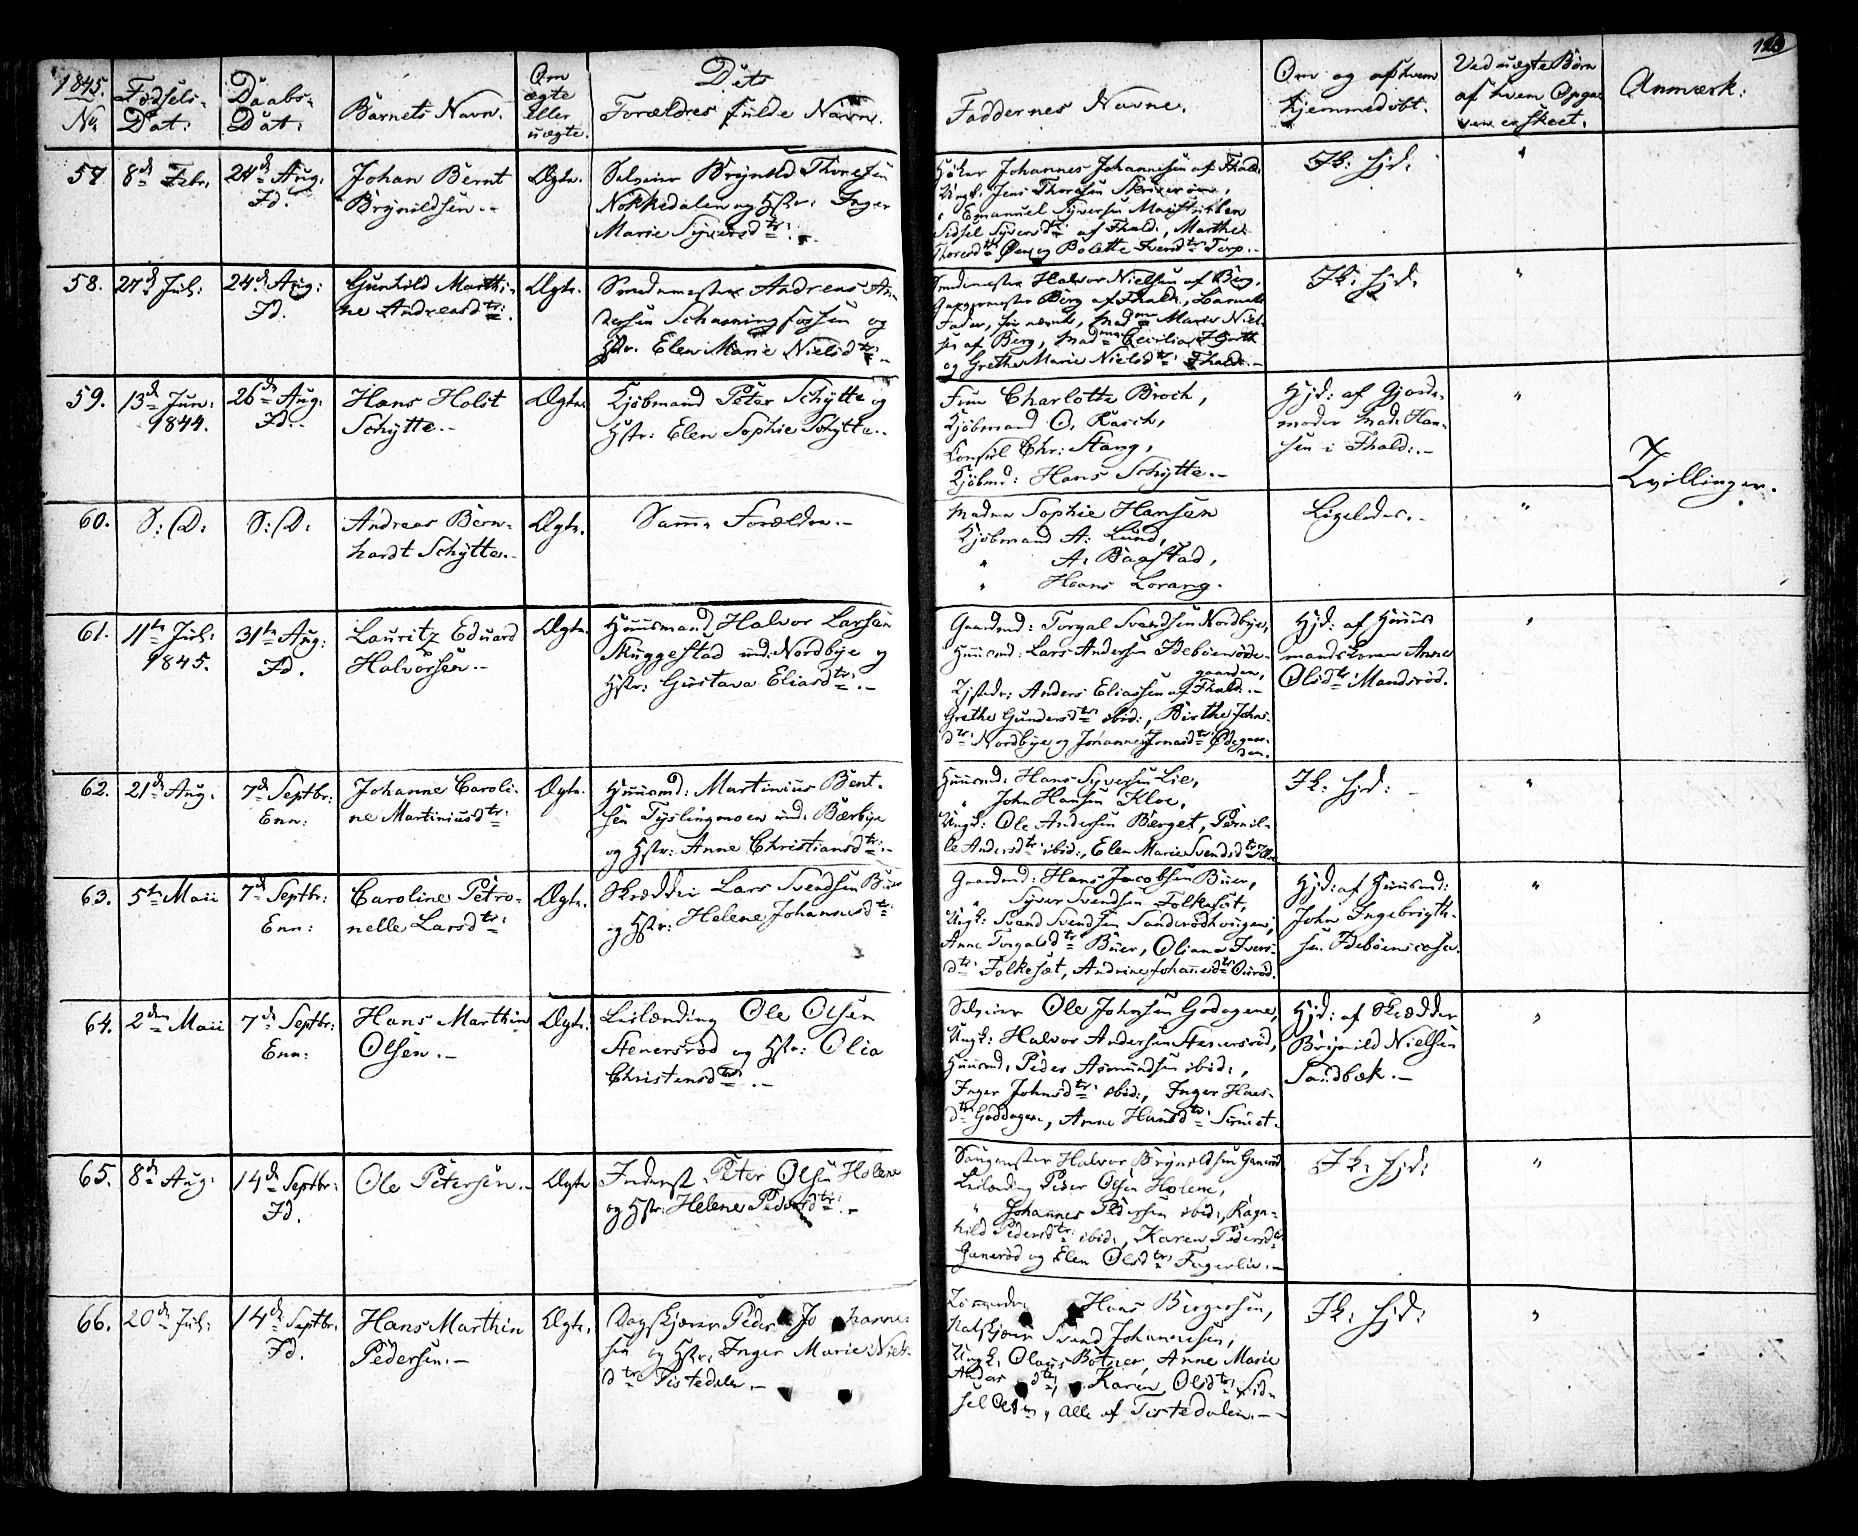 1845.
No
Fødsels-
Dat:
Daabs-
Dat:
Barnets Navn.
Om
ægte
eller
uægte.
Dets
Forældres fulde Navn.
Faddernes Navne.
Om og af hvem
hjemmedøbt.
Ved uægte Børn
af hvem Opga-
ven er skeet.
Anmærk:
57.
8de Febr.
24de Aug.
Fd.
Johan Bernt
Brynildsen.-
Ægte.
Selveier Brynild Thoresen
Nokkedalen og Hstr: Inger
Marie Syversdtr:
Høker Johannes Johannesen af Fhald.
Ungk. Jens Thoresen
Emanuel Syversen
Sidsel Syversdtr: af Fhald:, Marthe
Thoresdtr og Bolette Torp.-
Ik: hjd:
58.
27de Jul:
24de Aug:
Fd.
Gunhild Marthi-
ne Andreasdtr:
Ægte.
Smedmester Andreas An-
dersen Schanningfossen og
Hstr. Elen Marie Nielsdtr:-
Smedmester Halvor Nielsen af Berg,
Berg af Fhald:, Barnets
Fader, Madme Marie Niel-
sen af Berg, Madme Cecilia
og Grethe Marie Nielsdtr: Fhald:-
Ik: hjd:
59.
13de Jun:
1844.
26de Aug.
Fd.-
Hans Holst
Schytte.-
Ægte.
Kjøbmand Peter Schytte og
Hstr: Elen Sophie Schytte.-
Frue Charlotte Broch,
Kjøbmand O. Rasch,
Consul Chr: Stang,
Kjøbmd: Hans Schytte.-
Hjd: af Gjorde-
moder Mad: Han-
sen i Fhald:.-
Tvillinger.
60.
S: D:
S: D:
Andreas Bern-
hardt Schytte.-
Ægte.
Samme Forældre.-
Madme Sophie Hansen
Kjøbmand A. Lund,
" A. Bagstad,
" Hans Lorang.
Ligeledes.-
61.
11te Jul:
1845.
31te Aug:
Fd.
Lauritz Eduard
Halvorsen.-
Ægte.
Huusmand Halvor Larsen
Muggestad und: Nordbye og
Hstr: Gustava Eliasdtr:.-
Gaardmd: Torgal Svendsen Nordbye,
Huusmd: Lars Andersen Idebøenøde-
gaarden,
Anders Eliassen af Fhald:.-
Grethe Gundersdtr ibid:, Birthe Johns-
dtr: Nordbye og Johanne Jonasdtr: Ødegaar-
den.
Hjd: af Huus-
mandskonen Anne
Olsdtr: Mandsrød.
62.
21de Aug.
7de Septbr:
Enn:
Johanne Caroli-
ne Martiniusdtr:
Ægte.
Huusmd: Martinius Bent-
sen Tyslingmoen und: Bærbye
og Hstr: Anne Christiansdtr:.-
Huusmd: Hans Syversen Lie,
" John Hansen Kloe,
Ungk: Ole Andersen Berget, Pernil-
le Andersdtr: ibid:, Elen Marie Svendsdtr
Ik: hjd:
63.
5te Maii
7de Septbr:
Enn:
Caroline Petro-
nelle Larsdtr:
Ægte.
Skrædder Lars Svendsen Buer
og Hstr: Helene Johannesdtr:
Gaardmd: Hans Jacobsen Buer,
" Syver Svendsen Folkesæt,
Ungk: Svend Svendsen Sanderødhougen,
Anne Torgalsdtr Buer, Oliane Ivers-
dtr: Folkesæt, Andrine Johannesdtr:
Hjd: af Huusmd:
John Ingebrigth-
sen Idebøen
64.
2den Maii
7de Septbr:
Enn:
Hans Marthin
Olsen.-
Ægte.
Leilænding Ole Olsen
Stenersrød og Hstr: Olia
Christensdtr:.-
Selveier Ole Johnsen Godagene,
Ungk: Halvor Andersen Stenersrød,
Huusmd: Peder Asmundsen ibid:,
Inger Johnsdtr: ibid:, Inger Hans-
dtr: Goddagen, Anne Hansdtr:
Hjd: af Skrædder
Brynild Nielsen
Sandbæk.-
65.
8de Aug.
14de Septbr:
Fd.
Ole Petersen.-
Ægte.
Inderst Peter Olsen Holene
og Hstr: Helene Pedersdtr:.-
Halvor Brynildsen
Leilænding Peder Olsen Holene,
" Johannes Pedersen ibid:, Ragn-
hild Pedersdtr: ibid:, Karen Pedersd.
og Elen Olsdtr: Fagerlie.-
Ik: hjd:
66.
20de Jul:
14de Septbr.
Fd.
Hans Marthin
Pedersen.-
Ægte.
Dagskjærer Peder Johanne-
sen og Hstr: Inger Marie Niels-
dtr: Tistedalen.-
Hans Birgersen,
Natskjærer Svend Johannesen,
Ungk. Olaus Botner, Anne Marie
Anders dtr, Karen Olsdtr: Sid-
sel Olsdtr, alle af Tistedalen.-
Ik: hjd: